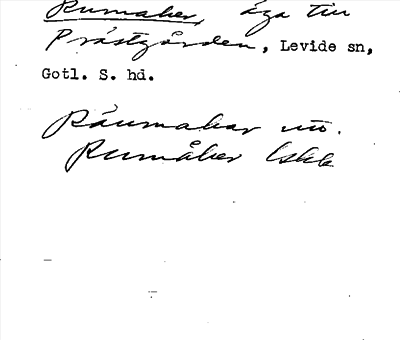 Rumaker, äga till
Prästgården, Levide sn,
Gotl. S. hd.
Råumakar
Rumåker Lskk